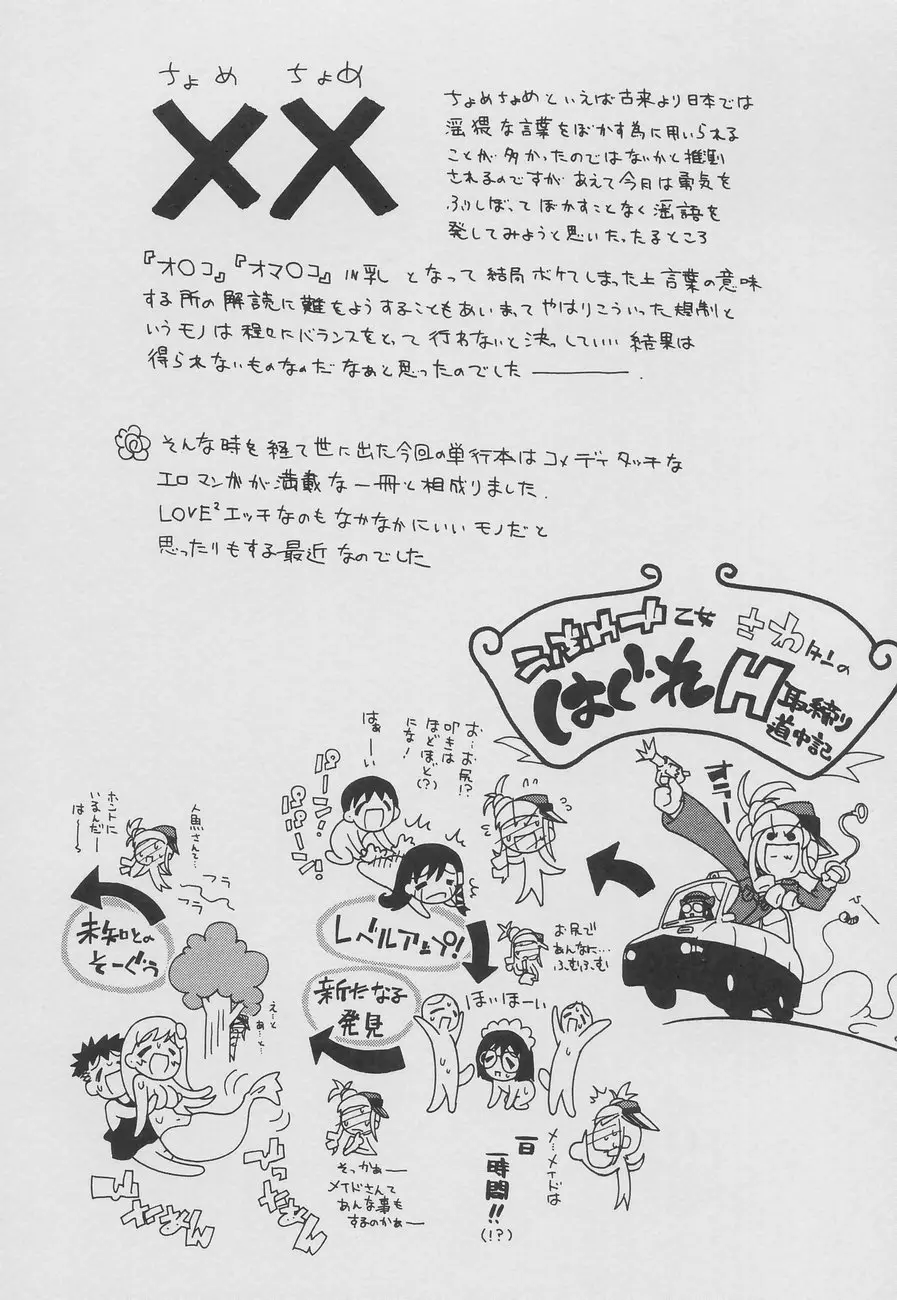 ちょめ ちょめ
××
ちょめちょめといえば古来より日本では
淫猥な言葉をぼかす為に用いられる
ことが多かったのではないかと推測
されるのですが あえて今日は勇気を
ふりしぼって ぼかすことなく淫語を
発してみようと思いたったるところ
『オ〇コ』『オマ〇コ』IN乳 となって 結局ボケてしまった上 言葉の意味
する所の解読に難をようすることもあいまって やはりこういった規制と
いうモノは 程々にバランスをとって 行わないと決っしていい 結果は
得られないものなのだなぁと思ったのでした―――.
そんな時を経て世に出た今回の単行本はコメディタッチな
エロマンガが満載な一冊と相成りました.
LOVE²エッチなのもなかなかにいいモノだと
思ったりもする最近なのでした
乙女 さわタンの
はぐれH取締り
道中記
お…お尻!?
叩きは
ほどほど(?)
にな!
はぁーい
パーン!
パーン!
レベルアップ!
お尻で
あんなに…
ふむふむ
ほいほーい
メ…メイドは
一日
一時間!!
(!?)
新たなる
発見
そっかぁー
メイドさんて
あんな事も
するのかぁー
えーと
あ…と…
人魚さんて…
ホントに
いるんだー
はー…
フラ
フラ
未知との
そーぐぅ